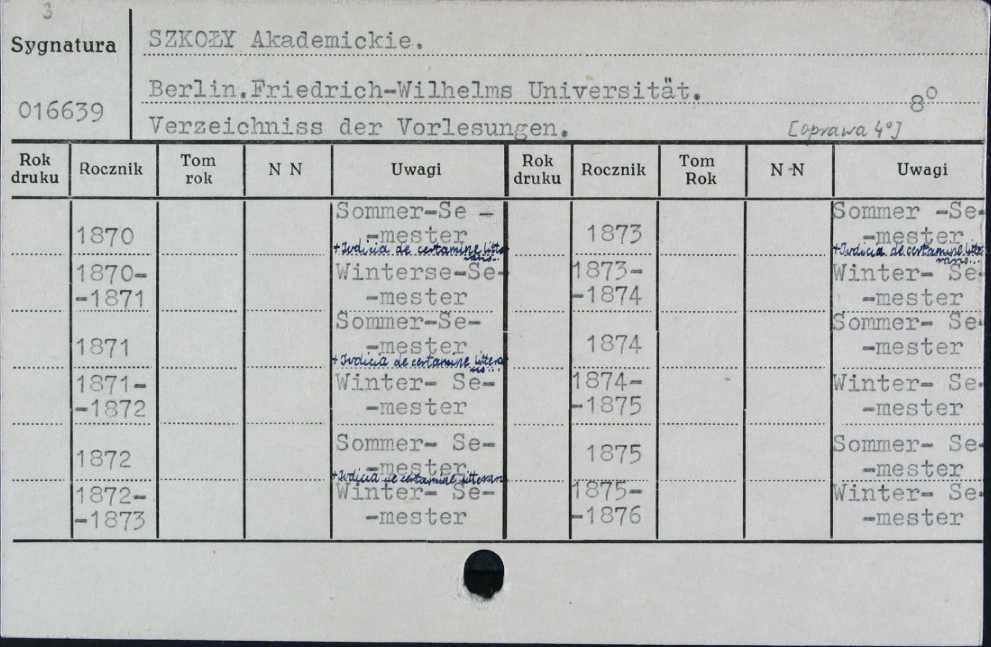 3
Sygnatura
SZKOŁY Akademickie.
Berlin.Friedrich-Wilhelms Universität.
8º
016639
Verzeichniss der Vorlesungen.
[oprawa 4º]
Rok druku Rocznik Tom rok N N Uwagi Rok druku Rocznik Tom Rok N N Uwagi
1870 Sommer-Se -
-mester
+Iudicia de certamine litte-
rario...
1870-
-1871 Winterse-Se-
-mester
1871 Sommer-Se-
-mester
+Iudicia de certamine littera-
rio...
1871-
-1872 Winter- Se-
-mester
1872 Sommer- Se-
-mester
+Iudicia de certamine litterario
1872-
-1873 Winter- Se-
-mester
1873 Sommer -Se-
-mester
+Iudicia de certamine litte-
rario...
1873-
-1874 Winter- Se-
-mester
1874 Sommer- Se-
-mester
1874-
-1875 Winter- Se-
-mester
1875 Sommer- Se-
-mester
1875-
-1876 Winter- Se-
-mester